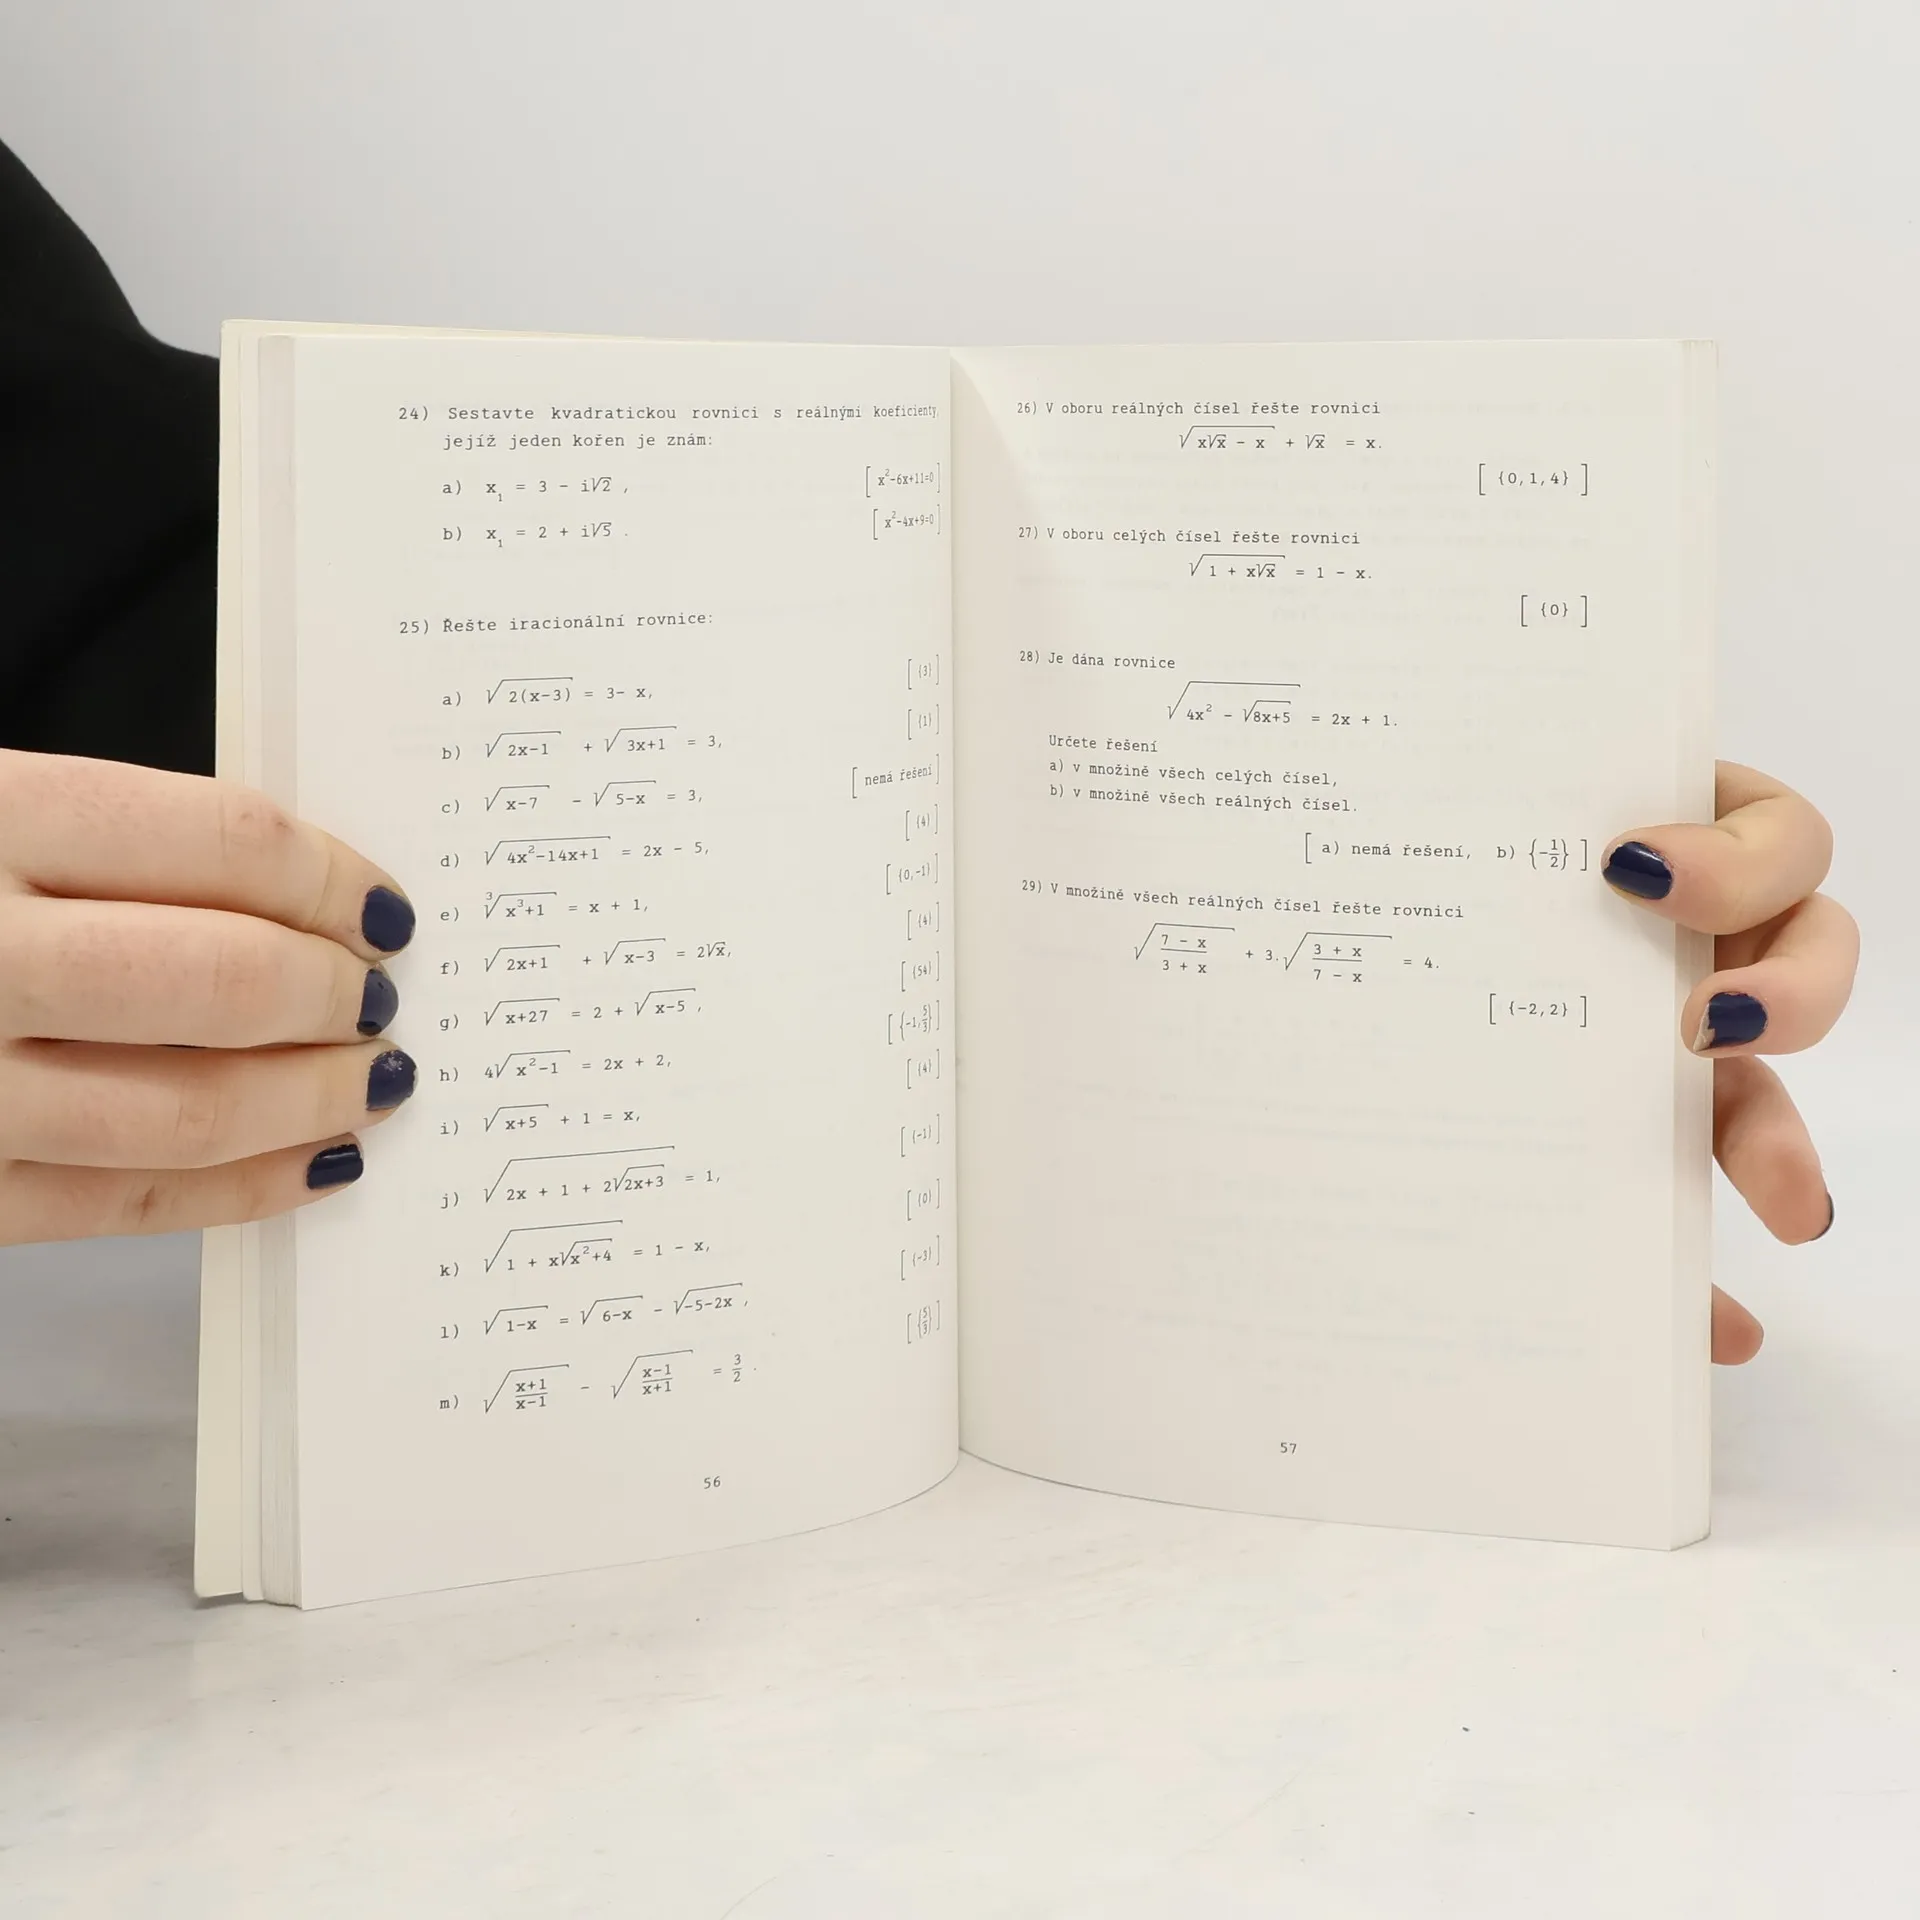 24) Sestavte kvadratickou rovnici s reálnými koeficienty,
jejíž jeden kořen je znám:
a) x₁ = 3 - i√2 , [ x²-6x+11=0 ]
b) x₁ = 2 + i√5 . [ x²-4x+9=0 ]
25) Řešte iracionální rovnice:
a) √(2(x-3)) = 3- x, [ {3} ]
b) √(2x-1) + √(3x+1) = 3, [ {1} ]
c) √(x-7) - √(5-x) = 3, [ nemá řešení ]
d) √(4x²-14x+1) = 2x - 5, [ {4} ]
e) ∛(x³+1) = x + 1, [ {0,-1} ]
f) √(2x+1) + √(x-3) = 2√x, [ {4} ]
g) √(x+27) = 2 + √(x-5) , [ {54} ]
h) 4√(x²-1) = 2x + 2, [ {-1,5/3} ]
i) √(x+5) + 1 = x, [ {4} ]
j) √(2x + 1 + 2√(2x+3)) = 1, [ {-1} ]
k) √(1 + x√(x²+4)) = 1 - x, [ {0} ]
l) √(1-x) = √(6-x) - √(-5-2x) , [ {-3} ]
m) √((x+1)/(x-1)) - √((x-1)/(x+1)) = 3/2 . [ {5/3} ]
56
26) V oboru reálných čísel řešte rovnici
√(x√x - x) + √x = x.
[ {0,1,4} ]
27) V oboru celých čísel řešte rovnici
√(1 + x√x) = 1 - x.
[ {0} ]
28) Je dána rovnice
√(4x² - √(8x+5)) = 2x + 1.
Určete řešení
a) v množině všech celých čísel,
b) v množině všech reálných čísel.
[ a) nemá řešení, b) {-1/2} ]
29) V množině všech reálných čísel řešte rovnici
√((7 - x)/(3 + x)) + 3.√((3 + x)/(7 - x)) = 4.
[ {-2,2} ]
57